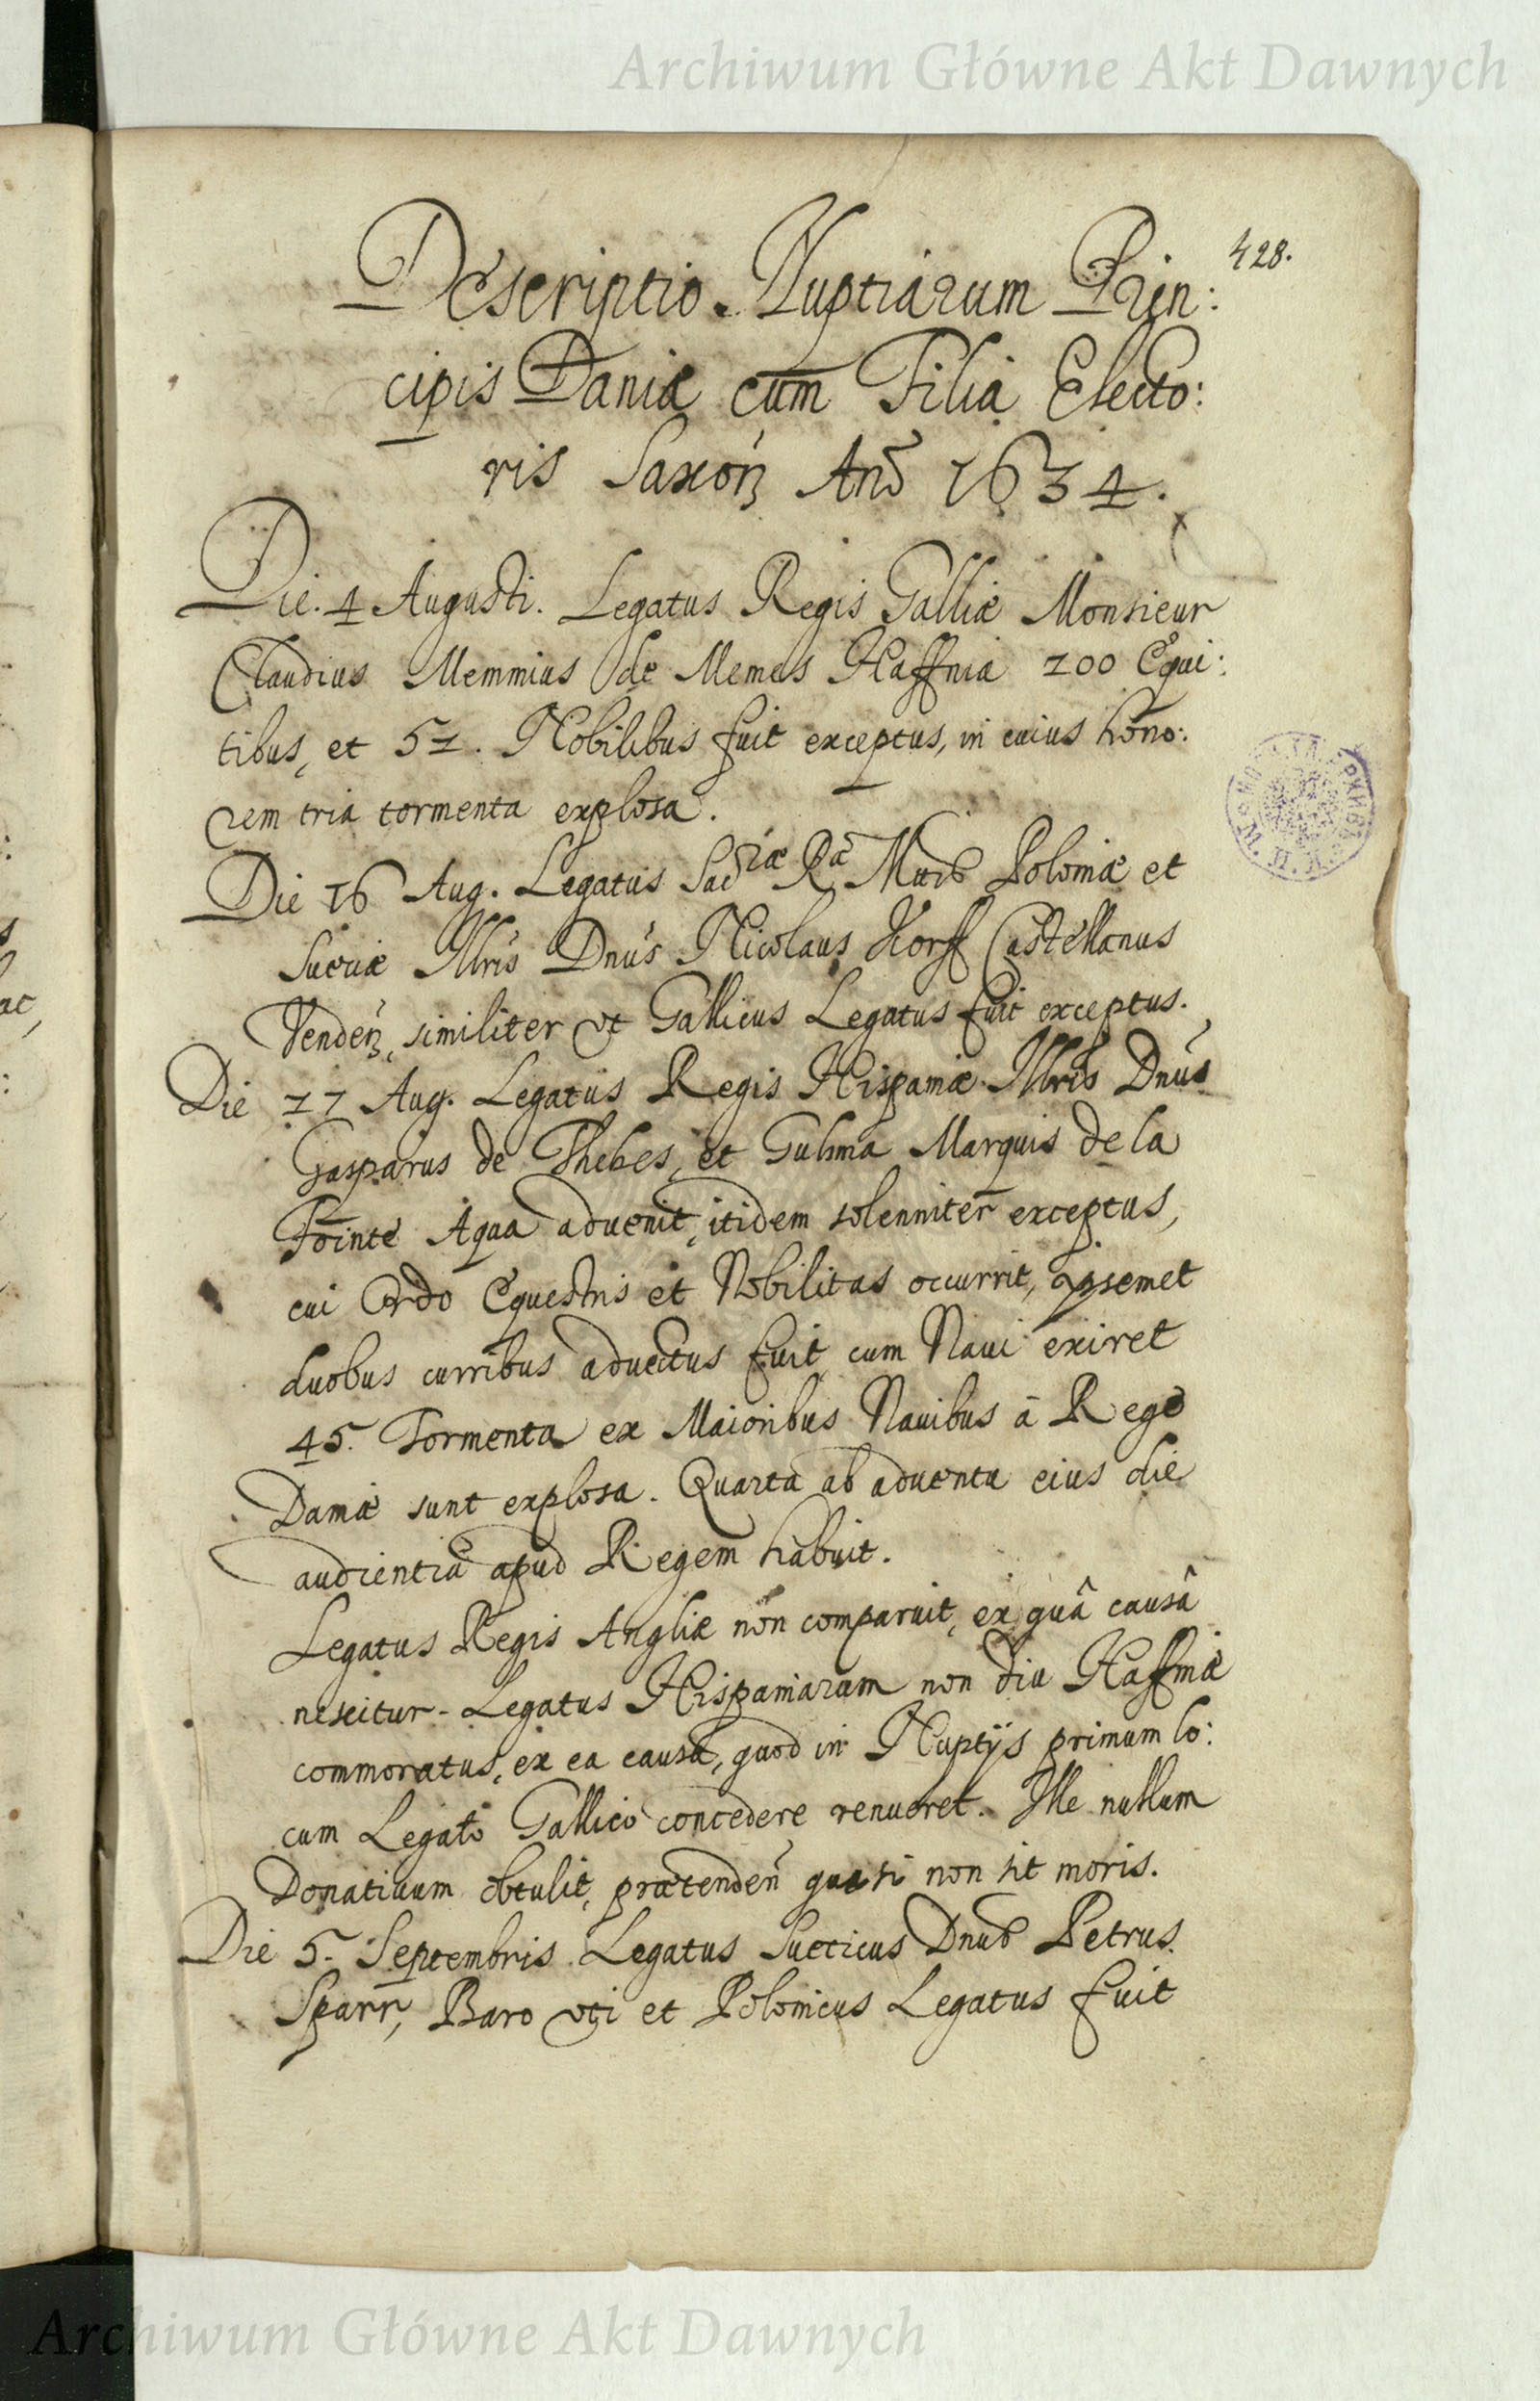 Archiwum Główne Akt Dawnych
428.
Descriptio Nuptiarum Prin:
cipis Daniæ cum Filia Electo:
ris Saxon Anō 1634.
Die. 4 Augusti. Legatus Regis Galliæ Monsieur
Claudius Memmius de Memes Haffnia 100 Equi:
tibus, et 51. Nobilibus fuit exceptus, in cuius hono:
rem tria tormenta explosa.
Die 16 Aug. Legatus Sacræ Rᵃ Mttis Poloniæ et
Sueciæ Illris Dnus Nicolaus Korff Castellanus
Venden, similiter ut Gallicus Legatus fuit exceptus.
Die 27 Aug. Legatus Regis Hispaniæ Illris Dnus
Gasparus de Thebes, et Guhma Marquis de la
Fointe Aqua aduenit, itidem solenniter exceptus,
cui Ordo Equestris et Nobilitas occurrit, ipsemet
duobus curribus aduectus fuit cum Naui exiret
45. Tormenta ex Maioribus Nauibus â Rege
Daniæ sunt explosa. Quarta ab aduentu eius die
audientiā apud Regem habuit.
Legatus Regis Angliæ non comparuit, ex quâ causâ
nescitur. Legatus Hispaniarum non diu Haffniæ
commoratus, ex ea causa, quod in Nuptijs primum lo:
cum Legato Gallico concedere renueret. Ille nullum
Donatiuum obtulit, prætenden quasi non sit moris.
Die 5. Septembris Legatus Sueticus Dnus Petrus
Sparr, Baro uti et Polonicus Legatus fuit
Archiwum Główne Akt Dawnych